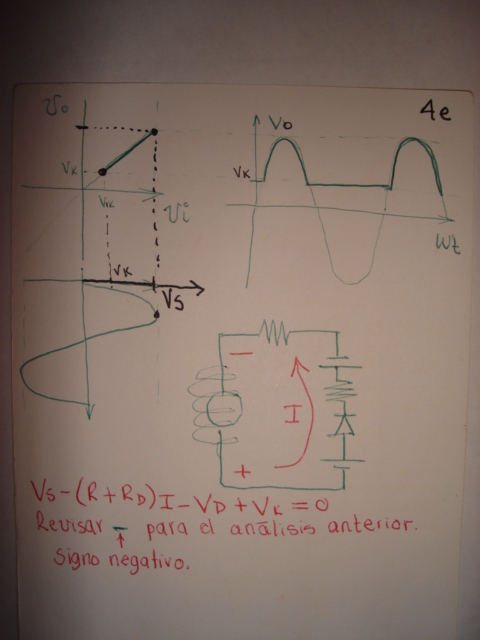 4e
Vo
VK
VK
Vi
VK
VS
Vo
VK
Wt
−
I
+
Vs-(R+RD)I-VD+VK=0
Revisar - para el análisis anterior.
↑
signo negativo.